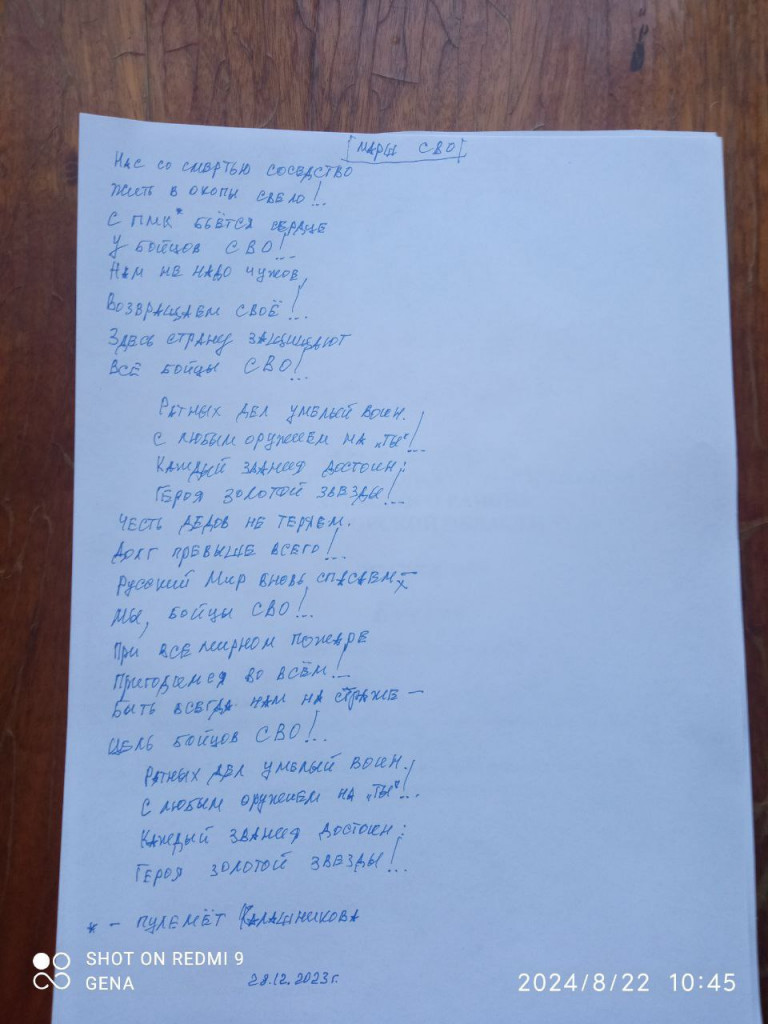 МАРШ СВО
Нас со смертью соседство
Жить в окопы свело!..
С ПМК* бьётся сердце
У бойцов СВО!..
Нам не надо чужов,
Возвращаем своё!..
Здесь страну защищают
Все бойцы СВО!..
Ратных дел умелый воин.
С любым оружием на „ты"!..
Каждый звания достоин:
Героя золотой звезды!..
Честь дедов не теряем.
Долг превыше всего!..
Русский Мир вновь спасаем –
Мы, бойцы СВО!..
При всемирном пожаре
Пригодимся во всём!..
Быть всегда нам на страже –
Цель бойцов СВО!..
Ратных дел умелый воин.
С любым оружием на „ты"!..
Каждый звания достоин:
Героя золотой звезды!..
* – пулемёт Калашникова
28.12.2023г.
SHOT ON REDMI 9
GENA
2024/8/22 10:45